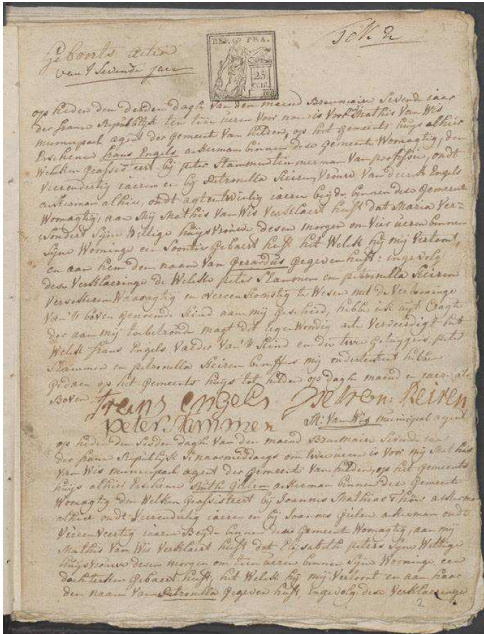 Geboorte acten
van 't sevende jaer
REP. FRA.
25
op heden den derden dagh van den maend Brumaire sevende jaer
der franse Republijk ten tien uren voor noen is voor Mathis Van Wis
municipael agent der gemeente Van helden, op het gemeents huijs alhier
Erschenen frans Engels ackerman binnen dese gemeente Womagtig, den
Welken geassisteert bij peter Stammen timmerman van professie, oudt
Veerendertig jaeren en bij Petronella Reiren Vrouwe Van Engels
ackerman alhier, oudt jaeren beijde binnen dese gemeente
Womagtig, aan Mij Mathis Van Wis Verklaert heeft dat Maria Ver-
Sijne Wettige huijsvrouwe desen morgen om Vier uren binnen
Sijne Woninge een Soontie gebaert heeft het Welk hij mij Vertoont,
en aan hem den naam Van Gerardus gegeven heeft: ingevolg
dese Verklaeringe de Welke peter Stammen en petronella Reiren
Verseekeren Waeragtig en overeenkomstig te Wesen met de Verlossinge
Van 't boven genoemde Kind aan mij geschied, hebbe ik uijt Cragte
der aan mij toebetrouwde magt dit tegenwoordig acte Verveerdigt het
Welk frans Engels Vader Van 't Kind en die twee getuijgen peter
Stammen en petronella Reiren benessens mij ondertekent hebben
gedaen op het gemeents huijs tot helden op dagh maend en jaer als
Boven
frans engels
Petronel Reiren
peter stammen
M: Van Wis municipael agent
op heden den Sesden dagh van den maend Brumaire Sevende jaer
der franse Republijk S'naermiddags om twee uren is voor mij Mathis
Van Wis municipael agent der gemeente Van helden, op het gemeents
huijs alhier Erschene Gielen ackerman binnen dese gemeente
Womagtig den Welken geassisteert bij Joannes Mathias ackerman
alhier oudt Veerendertig jaeren en bij Joannes Gielen ackerman oudt
Vierenveertig jaeren Beijde binnen dese gemeente Womagtig, aan mij
Mathis Van Wis Verklaert heeft dat Elisabeth peters Sijne Wettige
huijsvrouwe desen morgen om uren binnen Sijne Woninge een
dochterken gebaert heeft, het Welk hij mij Vertoont en aan haer
den naam Van Petronella gegeven heeft Ingevolg dese Verklaeringe
2